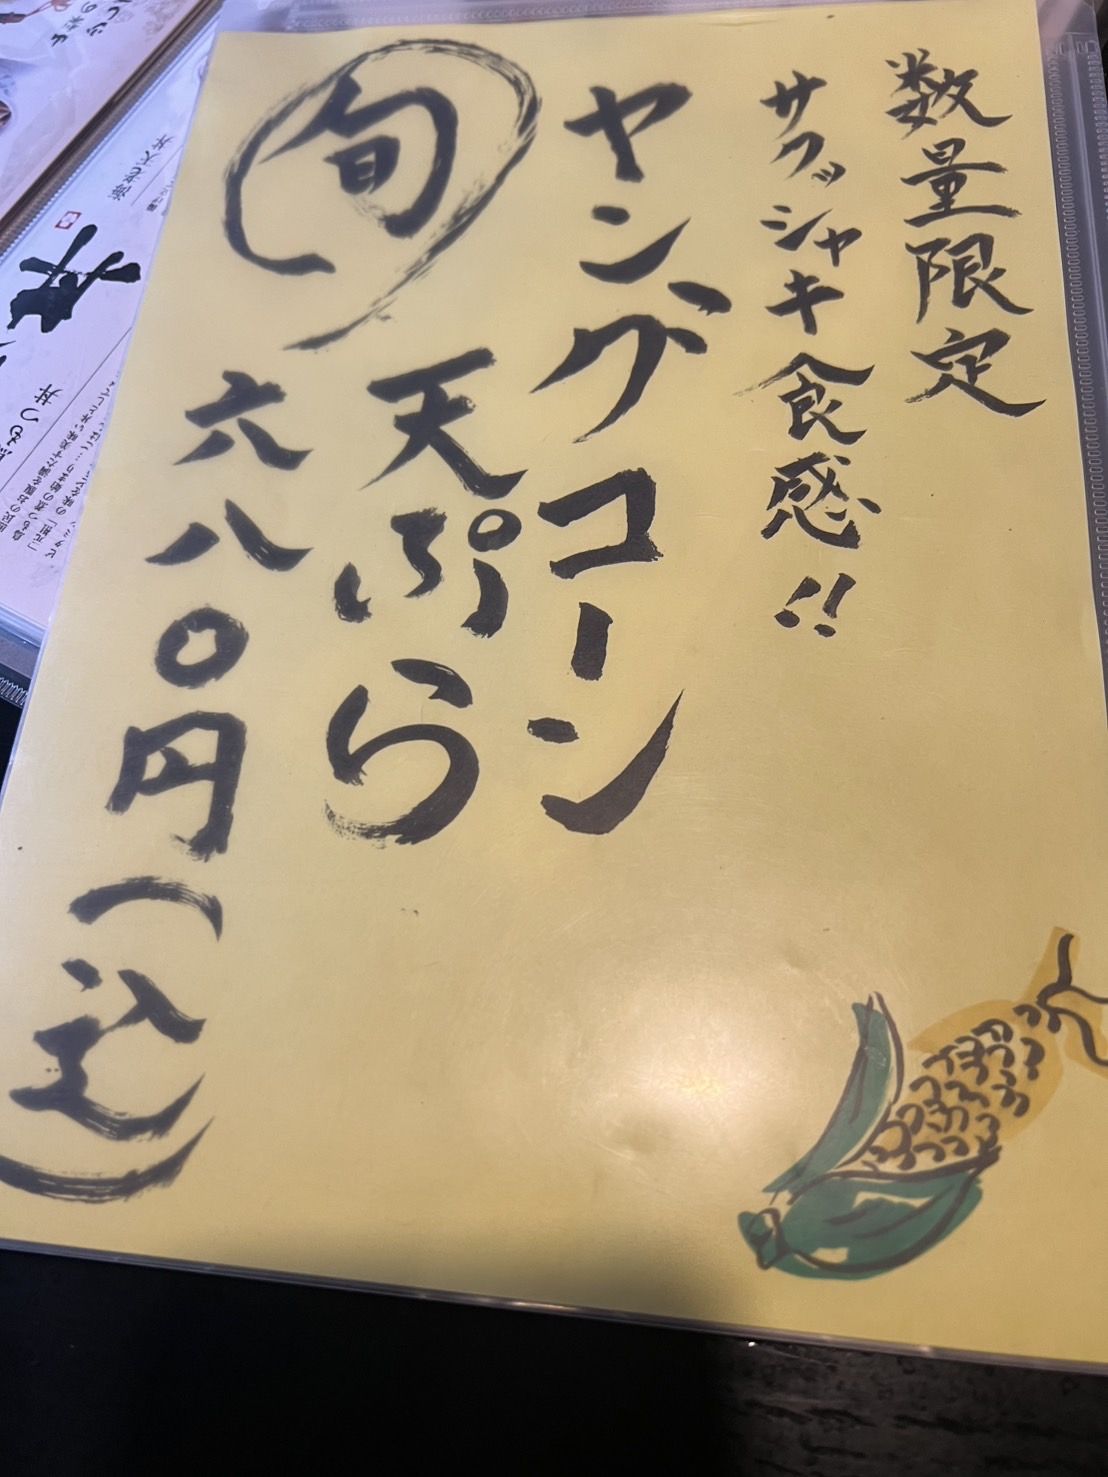 数量限定
サクッシャキ食感!!
ヤングコーン
天ぷら
旬
六八〇円(込)